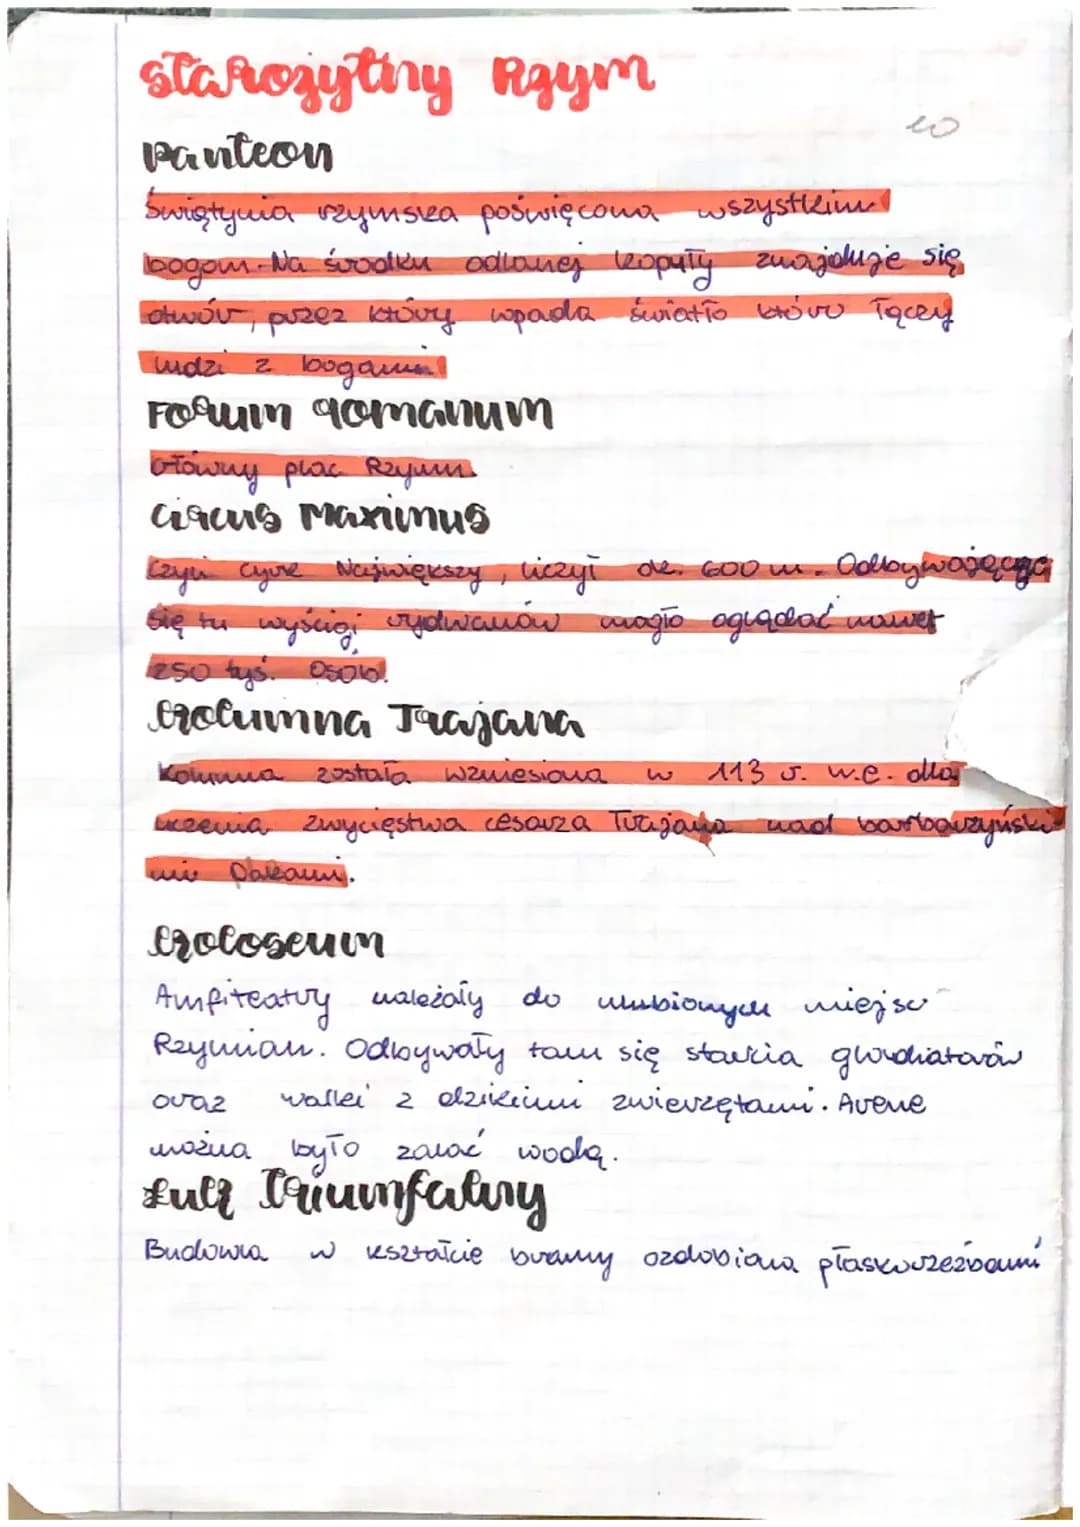 starożytny Rzym
10
Panteon
Świątynia rzymska poświęcona wszystkim
bogom. Na środku odlanej kopuły znajduje się
otwór, przez który wpada światło które łączy
ludzi z bogami
Forum romanum
Główny plac Rzymu.
circus Maximus
Czyli cyrk Największy, liczył ok. 600 m. Odbywającge
się tu wyścigi rydwanów mogło oglądać nawet
250 tyś. osób.
kolumna Trajana
Kolumna została wzniesiona w 113 r. w.e. dla
uczenia zwycięstwa cesarza Trajana nad barbarzyński
mi Dakami.
koloseum
Amfiteatry należały do ulubionych miejsc
Rzymian. Odbywały tam się starcia gladiatorów
oraz walki z dzikimi zwierzętami. Arene
można było zalać wodą.
Łuk Triumfalny
Budowla w kształcie bramy ozdobiona płaskorzeźbami